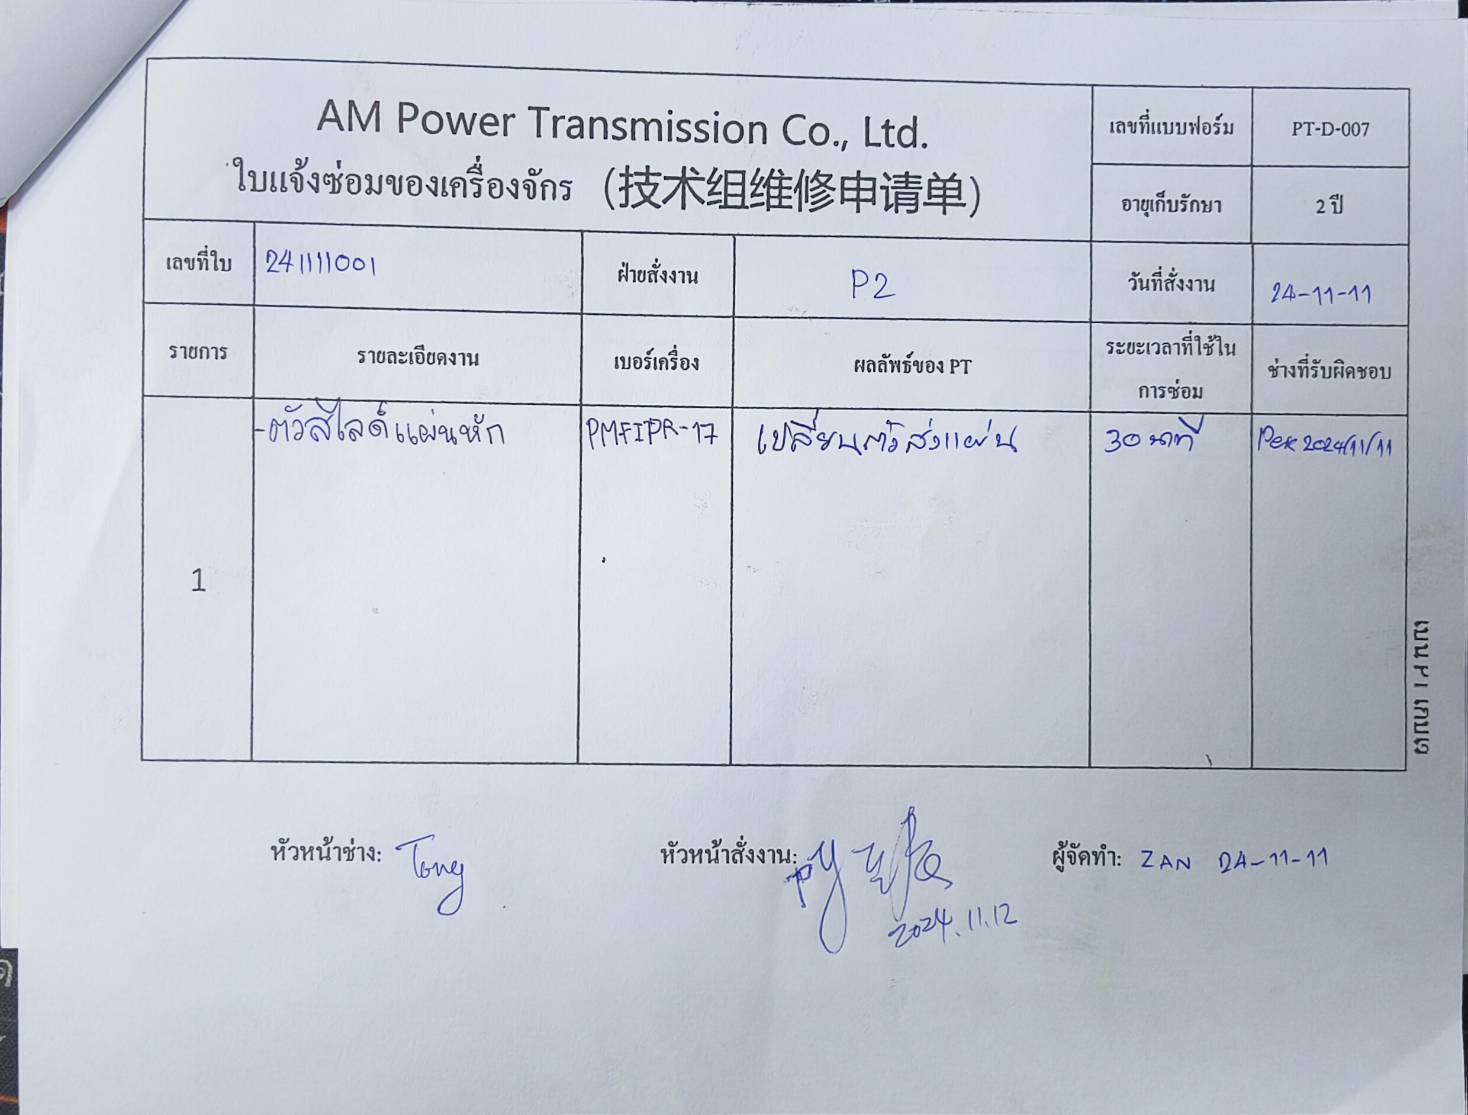 AM Power Transmission Co., Ltd.
ใบแจ้งซ่อมของเครื่องจักร (技术组维修申请单)
เลขที่แบบฟอร์ม PT-D-007
อายุเก็บรักษา 2 ปี
เลขที่ใบ 241111001 ฝ่ายสั่งงาน P2 วันที่สั่งงาน 24-11-11
รายการ รายละเอียดงาน เบอร์เครื่อง ผลลัพธ์ของ PT ระยะเวลาที่ใช้ใน
การซ่อม ช่างที่รับผิดชอบ
1 -ตัวสไลด์แผ่นหัก PMFIPR-17 เปลี่ยนตัวส่งแผ่น 30 นาที Pek 2024/11/11
หัวหน้าช่าง: Tong หัวหน้าสั่งงาน: ผู้จัดทำ: ZAN 24-11-11
2024.11.12